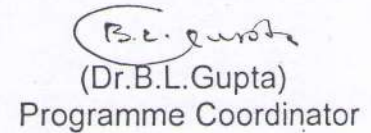 B.L. Gupta
(Dr.B.L.Gupta)
Programme Coordinator